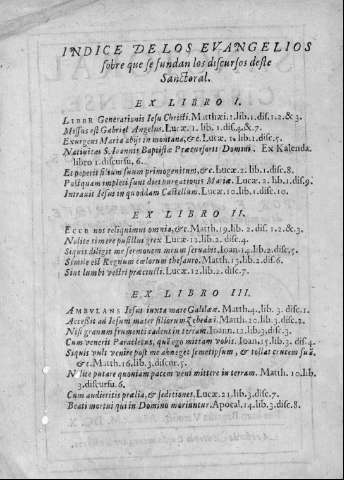 INDICE DE LOS EVANGELIOS
sobre que se fundan los discursos deste
Sanctoral.
EX LIBRO I.
LIBER Generationis Iesu Christi. Matthæi. 1. lib. 1. dis. 1. 2. & 3.
Missus est Gabriel Angelus. Lucæ. 1. lib. 1. dis. 4. & 7.
Exurgens Maria abijt in montana, &c. Lucæ. 1. lib. 1. disc. 5.
Natiuitas S. Ioannis Baptistæ Præcursoris Domini. Ex Kalenda.
libro 1. discursu. 6.
Et peperit filium suum primogenitum, &c. Lucæ. 2. lib. 1. disc. 8.
Postquam impleti sunt dies purgationis Mariæ. Lucæ. 2. lib. 1. dis. 9.
Intrauit Iesus in quoddam Castellum. Lucæ. 10. lib. 1. disc. 10.
EX LIBRO II.
ECCE nos reliquimus omnia, &c. Matth. 19. lib. 2. dis. 1.
Nolite timere pusillus grex Lucæ. 12. lib. 2. disc. 4.
Siquis diligit me sermonem meum seruabit. Ioan. 14. lib. 2. disc. 5.
Simile est Regnum cælorum thesauro. Matth. 13. lib. 2. dis. 6.
Sint lumbi vestri præcincti. Lucæ. 12. lib. 2. disc. 7.
EX LIBRO III.
AMBVLANS Iesus iuxta mare Galilææ. Matth. 4. lib. 3. disc. 1.
Accessit ad Iesum mater filiorum Zebedæi. Matth. 20. lib. 3. disc. 2.
Nisi granum frumenti cadens in terram. Ioann. 12. lib. 3. disc. 3.
Cum venerit Paracletus, quē ego mittam vobis. Ioan. 15. lib. 3. dis. 4.
Siquis vult venire post me abneget semetipsum, & tollat crucem suā
&c. Matth. 16. lib. 3. discur. 5.
Nolite putare quoniam pacem veni mittere in terram. Matth. 10. lib.
3. discursu. 6.
Cum audieritis prælia, & seditiones. Lucæ. 21. lib. 3. disc. 7.
Beati mortui qui in Domino moriuntur. Apocal. 14. lib. 3. disc. 8.